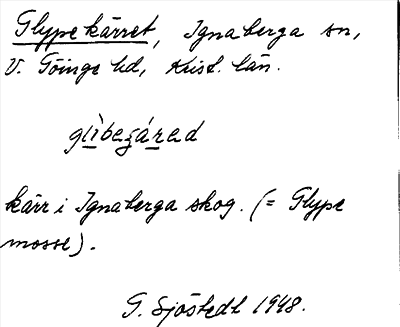 Glypekärret, Ignaberga sn,
V. Göinge hd, Krist. län.
glìbeʒáred
kärr i Ignaberga skog. (= Glype
mosse).
G. Sjöstedt 1948.